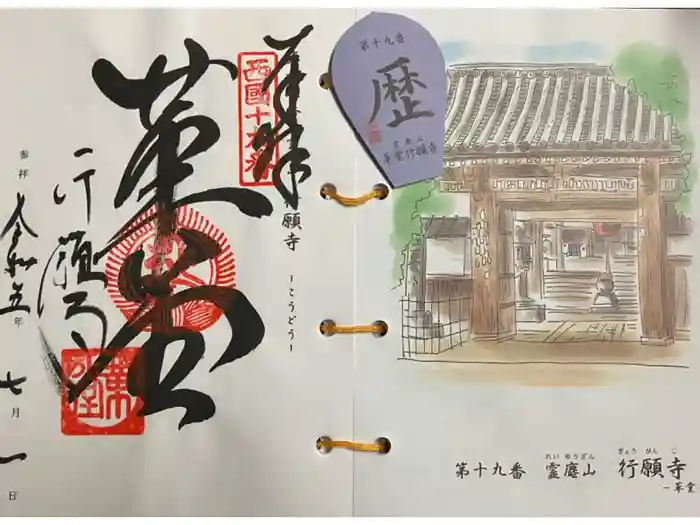 奉拝
西國十九番
願寺
ーこうどうー
革堂
行願寺
参拝 令和五年七月一日
第十九番
歴
こうどう
革堂行願寺
れいゆうざん ぎょうがんじ
第十九番 霊麀山 行願寺
ー革堂